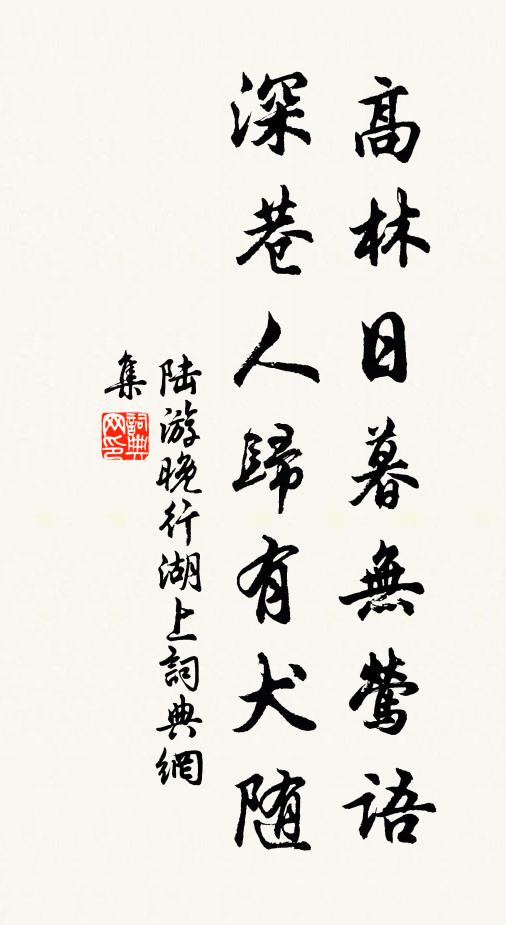 高林日暮無鶯語
深巷人歸有犬随
陆游晚行湖上詞典網
集
詞典
网印